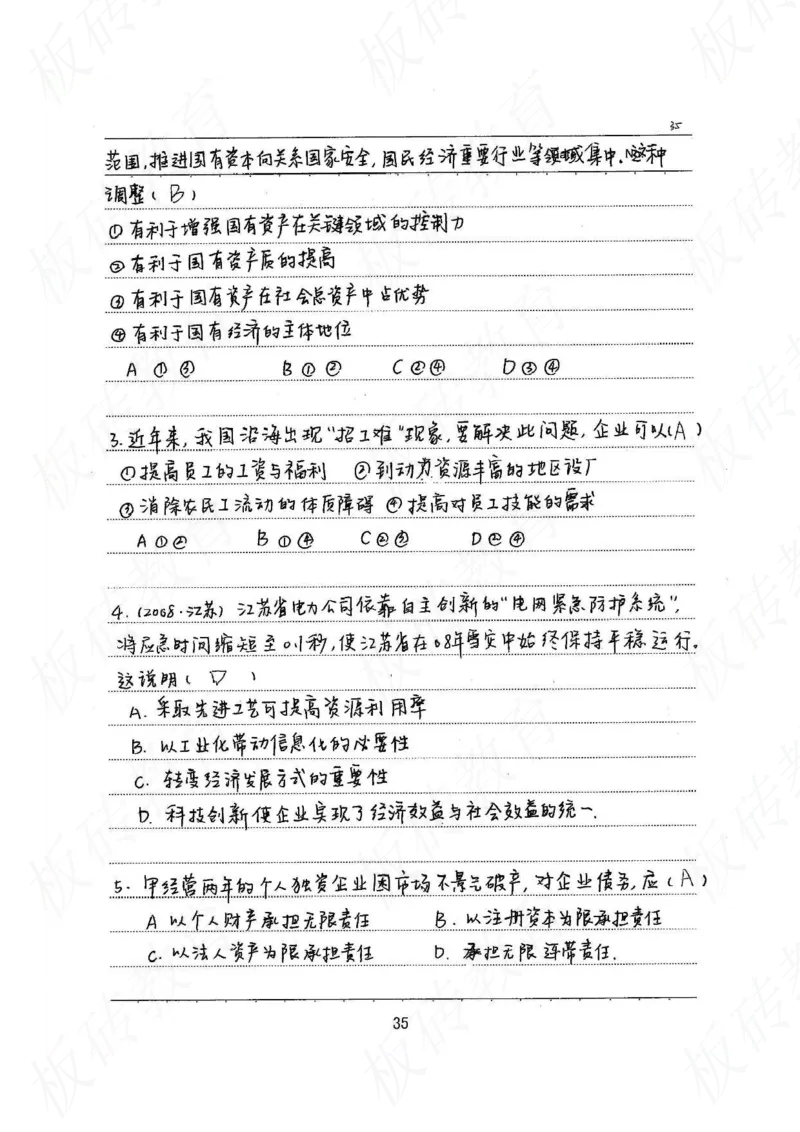 35
范围,推进国有资本向关系国家安全,国民经济重要行业等领域集中.这种
调整( B )
① 有利于增强国有资产在关键领域的控制力
② 有利于国有资产质的提高
③ 有利于国有资产在社会总资产中占优势
④ 有利于国有经济的主体地位
A ① ③ B ① ② C ② ④ D ③ ④
3. 近年来, 我国沿海出现"招工难"现象, 要解决此问题, 企业可以(A )
①提高员工的工资与福利 ②到动力资源丰富的地区设厂
③ 消除农民工流动的体质障碍 ④ 提高对员工技能的需求
A ① ② B ① ④ C ② ③ D ② ④
4. (2008·江苏) 江苏省电力公司依靠自主创新的"电网紧急防护系统",
将应急时间缩短至0.1秒, 使江苏省在08年雪灾中始终保持平稳运行.
这说明( D )
A. 采取先进工艺可提高资源利用率
B. 以工业化带动信息化的必要性
C. 转变经济发展方式的重要性
D. 科技创新使企业实现了经济效益与社会效益的统一.
5. 甲经营两年的个人独资企业因市场不景气破产, 对企业债务, 应(A )
A 以个人财产承担无限责任 B. 以注册资本为限承担责任
C. 以法人资产为限承担责任 D. 承担无限连带责任.
35
板砖教育